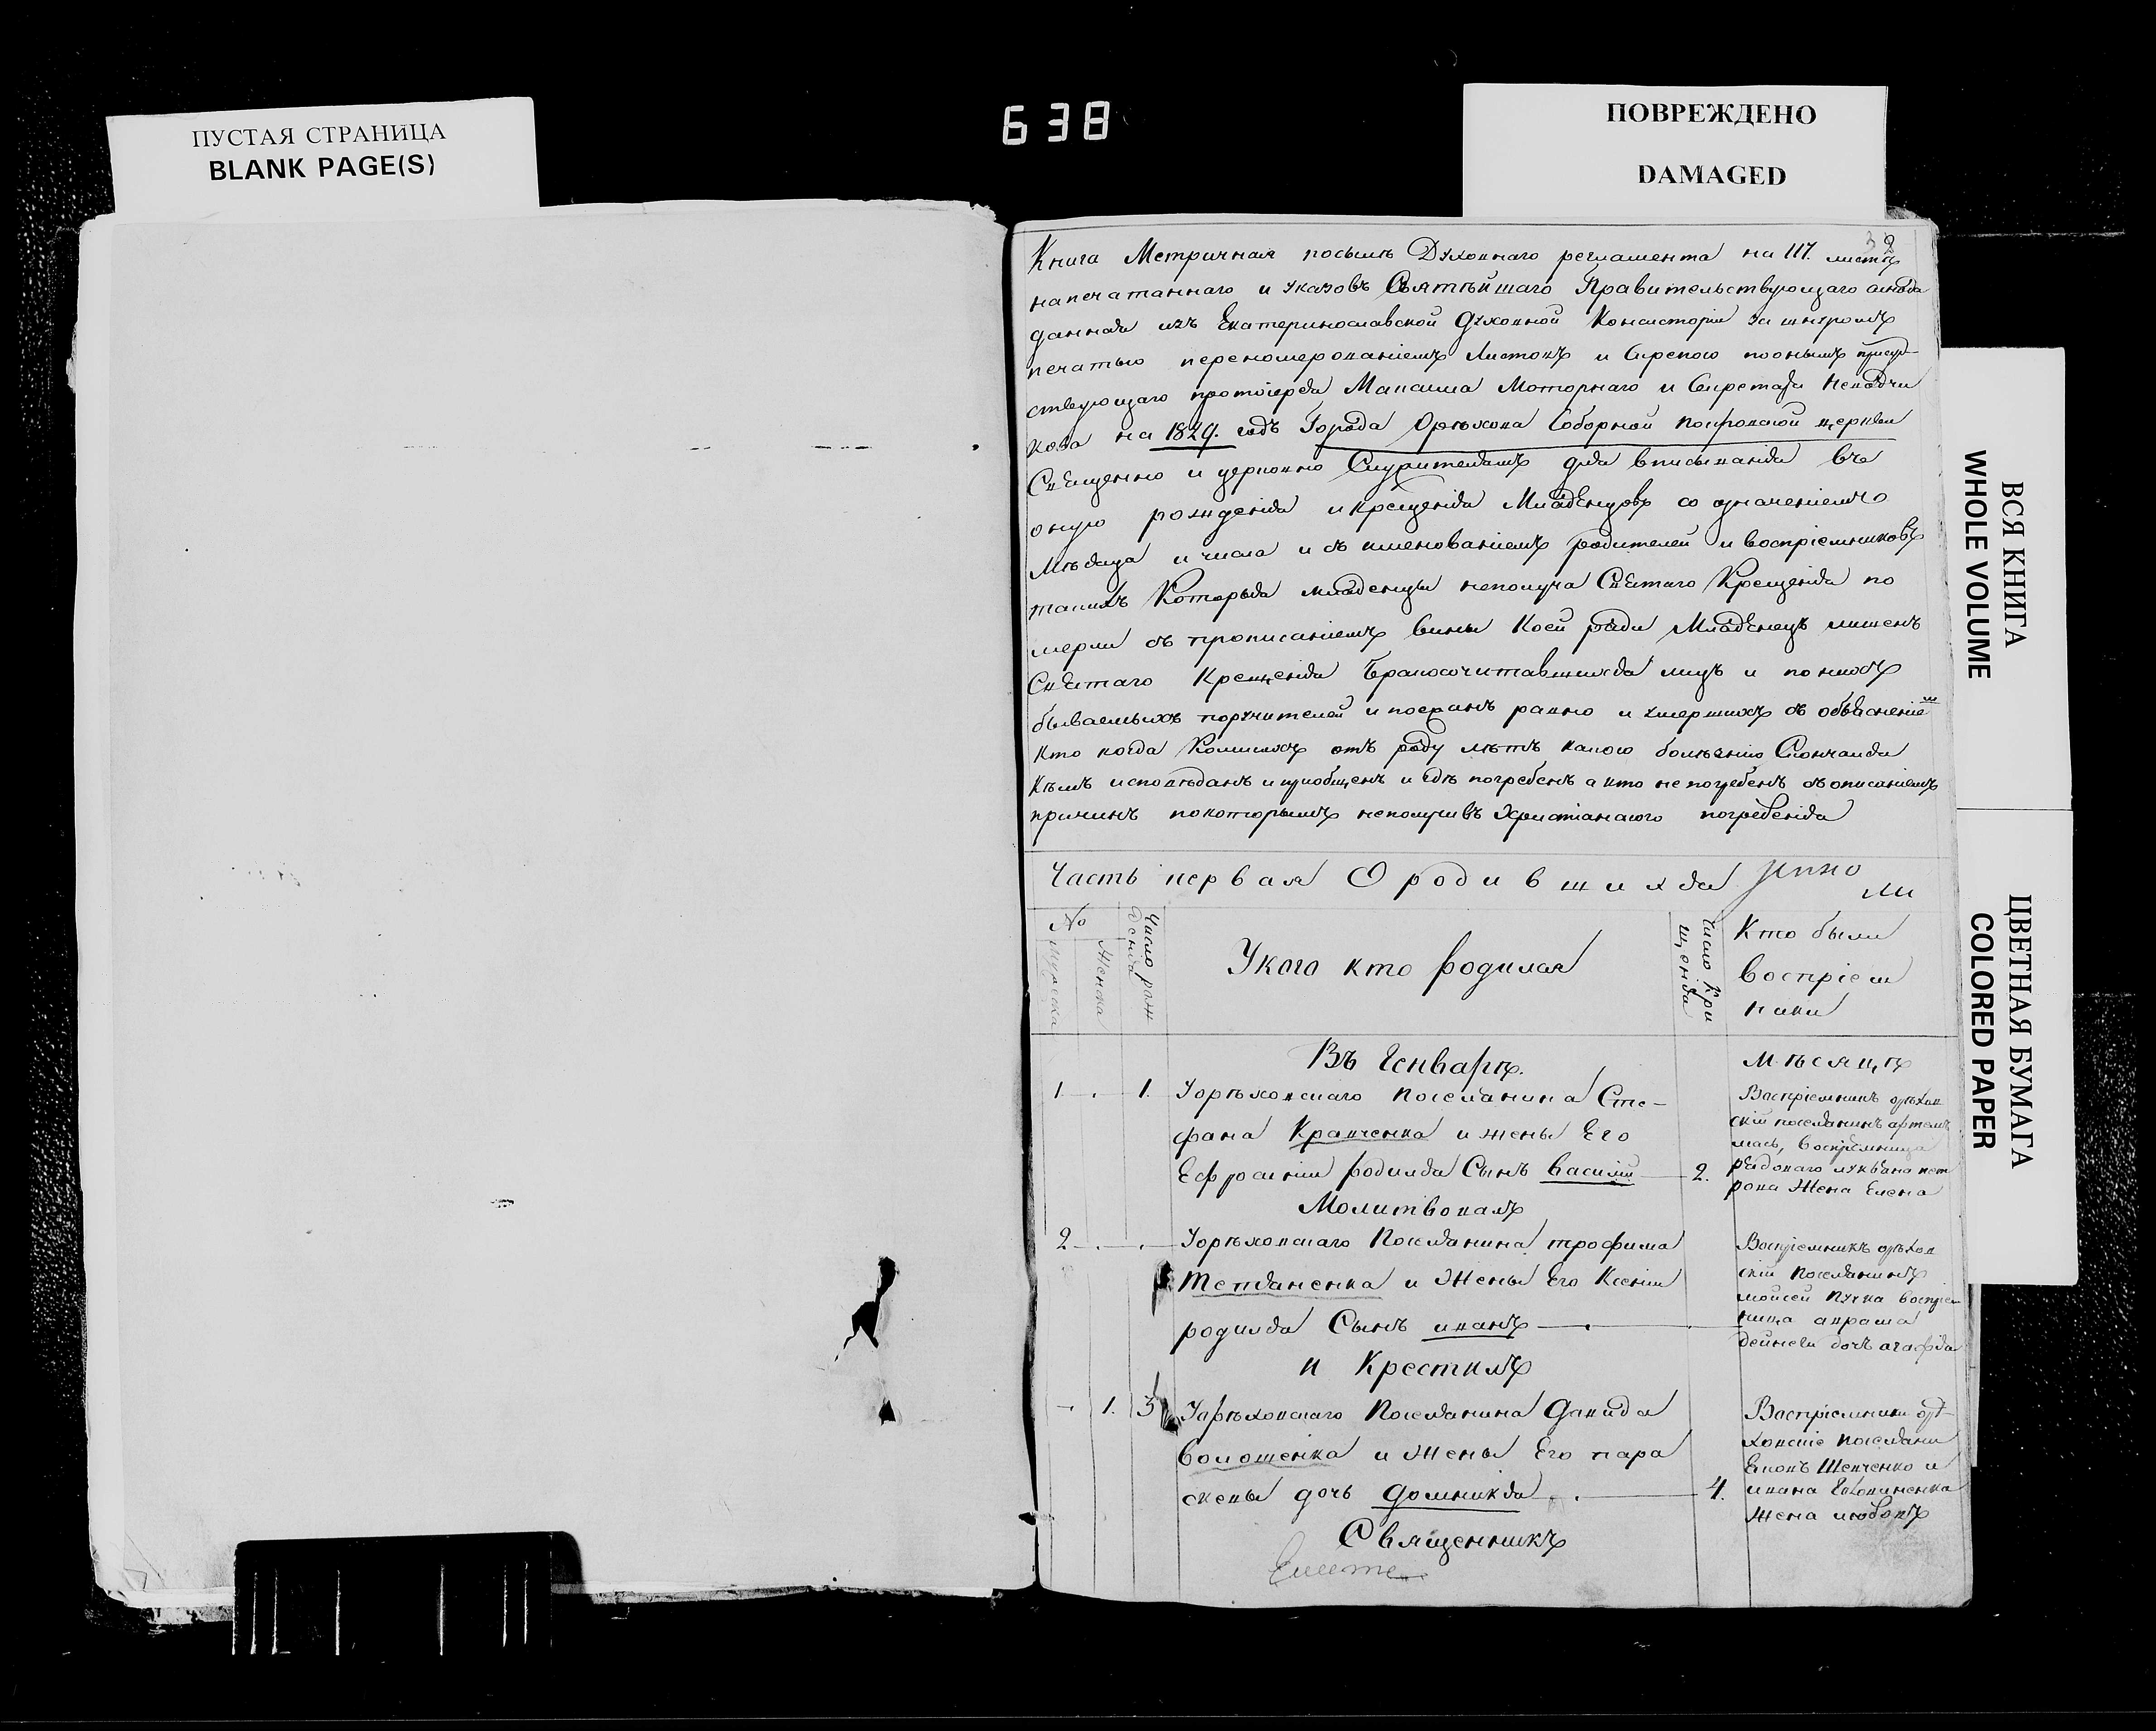 ПУСТАЯ СТРАНИЦА
BLANK PAGE(S)
638
ПОВРЕЖДЕНО
DAMAGED
Книга Метричная посылѣ Духовнаго регламента на 117. листѣ
напечатаннаго и указовъ Святѣйшаго Правительствующаго синода
данная изъ Екатеринославской Духовной Консисторіи за шнуромъ
печатью перенумерованіемъ Листовъ и Скрепою
ствующаго протоіерея Максима Моторнаго и Секретаря
на 1829. годъ Города Орѣхова Соборной Покровской церкви
Священно и церковно Служителямъ для вписыванія въ
оную рожденія и крещенія Младенцовъ со означеніемъ
Мѣсяца и числа и съ именованіемъ родителей и воспріемниковъ
такихъ Которыя младенцы неполуча Святаго Крещенія по
мерли съ прописаніемъ вины Коей ради Младенецъ лишенъ
Святаго Крещенія Бракосочитавшихся лицъ и по нихъ
бываемыхъ поручителей и поезжанъ равно и умершихъ съ объясненіе
Кто когда Коликихъ отъ роду лѣтъ какою болѣзнію Скончался
Кѣмъ исповѣданъ и приобщенъ и гдѣ погребенъ а кто непогребенъ съ описаніемъ
причинъ покоторымъ неполучивъ Христіанского погребенія
Часть первая О родившихся
№
Мужеска
Женска
Число рож
денія
Укого кто родился
Число Кре
щенія
Кто были
воспріем
ники
Въ Генварѣ.
мѣсяцѣ
1. 1. Уорѣховскаго поселянина Сте-
фана Кравченка и жены Его
Ефросиніи родился Сынъ василий 2.
Воспріемникъ орѣхов
скій поселянинъ
воспріемница
жена Елена
Молитвовалъ
2 Уорѣховскаго Поселянина трофима
и Жены Его Ксеніи
родился Сынъ иванъ
Воспріемникъ орѣхов
скій Поселянинъ
моисей Пучка воспріем
ница
дочь агафія
и Крестилъ
1. 3 Уорѣховскаго Поселянина Данила
волошенка и Жены Его пара
скевы дочь домникія 4.
Воспріемники орѣ
ховскіе Поселяни
Шевченко и
ивана
Жена любовъ
Священникъ
ВСЯ КНИГА
WHOLE VOLUME
ЦВЕТНАЯ БУМАГА
COLORED PAPER